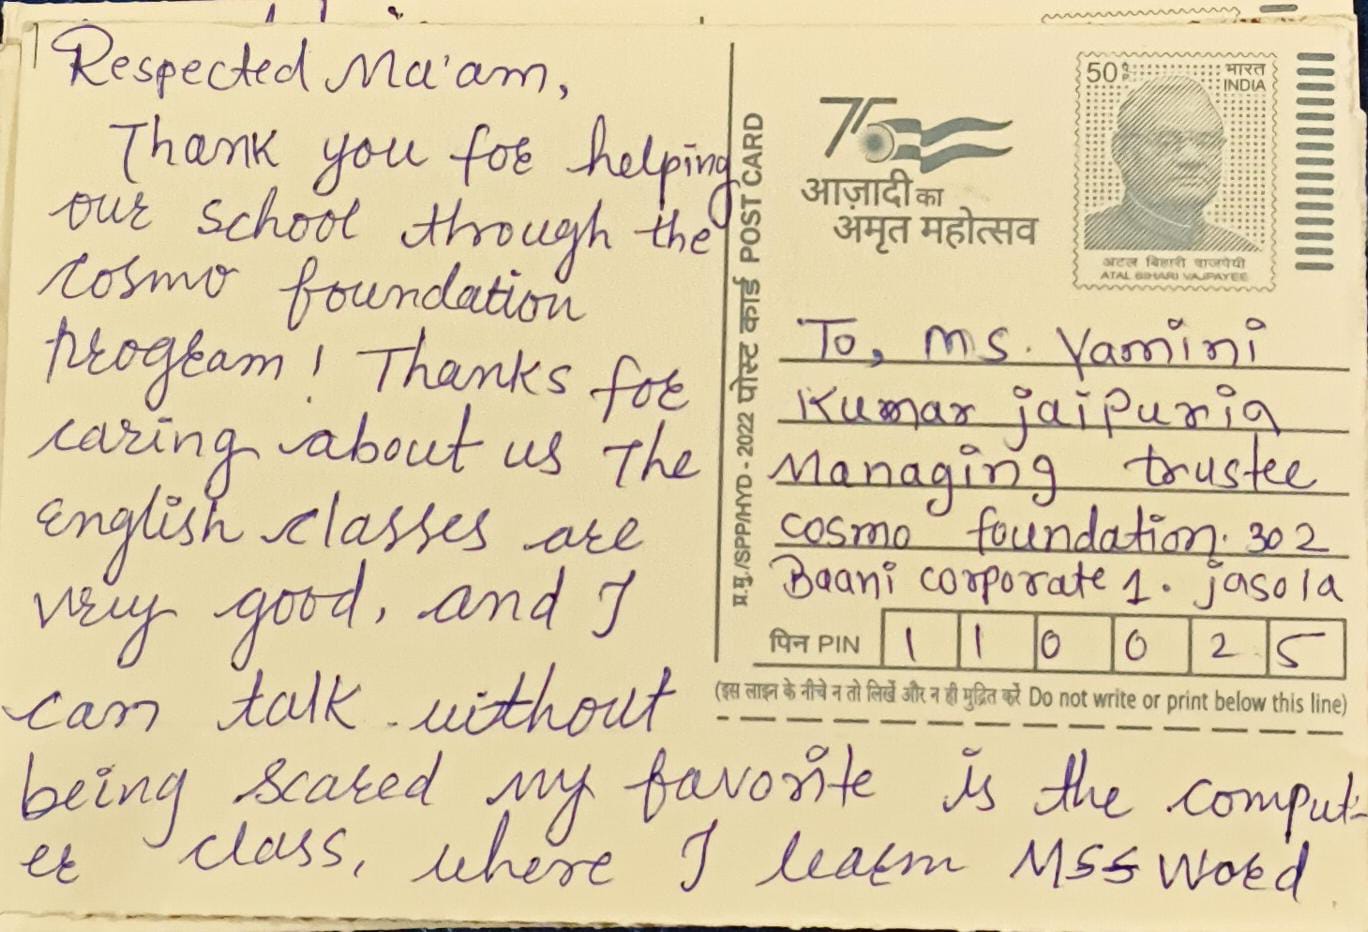 Respected Ma'am,
Thank you for helping
our school through the
cosmo foundation
program! Thanks for
caring about us The
English classes are
very good, and I
can talk without
being scared my favorite is the comput-
er class, where I learn MSS Word
प्र.मु./SPP/HYD - 2022 पोस्ट कार्ड POST CARD
75
आज़ादी का
अमृत महोत्सव
50 प. P. भारत
INDIA
अटल बिहारी वाजपेयी
ATAL BIHARI VAJPAYEE
To, Ms. Yamini
Kumar jaipuria
Managing trustee
cosmo foundation. 302
Baani corporate 1. jasola
पिन PIN 1 1 0 0 2 5
(इस लाइन के नीचे न तो लिखें और न ही मुद्रित करें Do not write or print below this line)